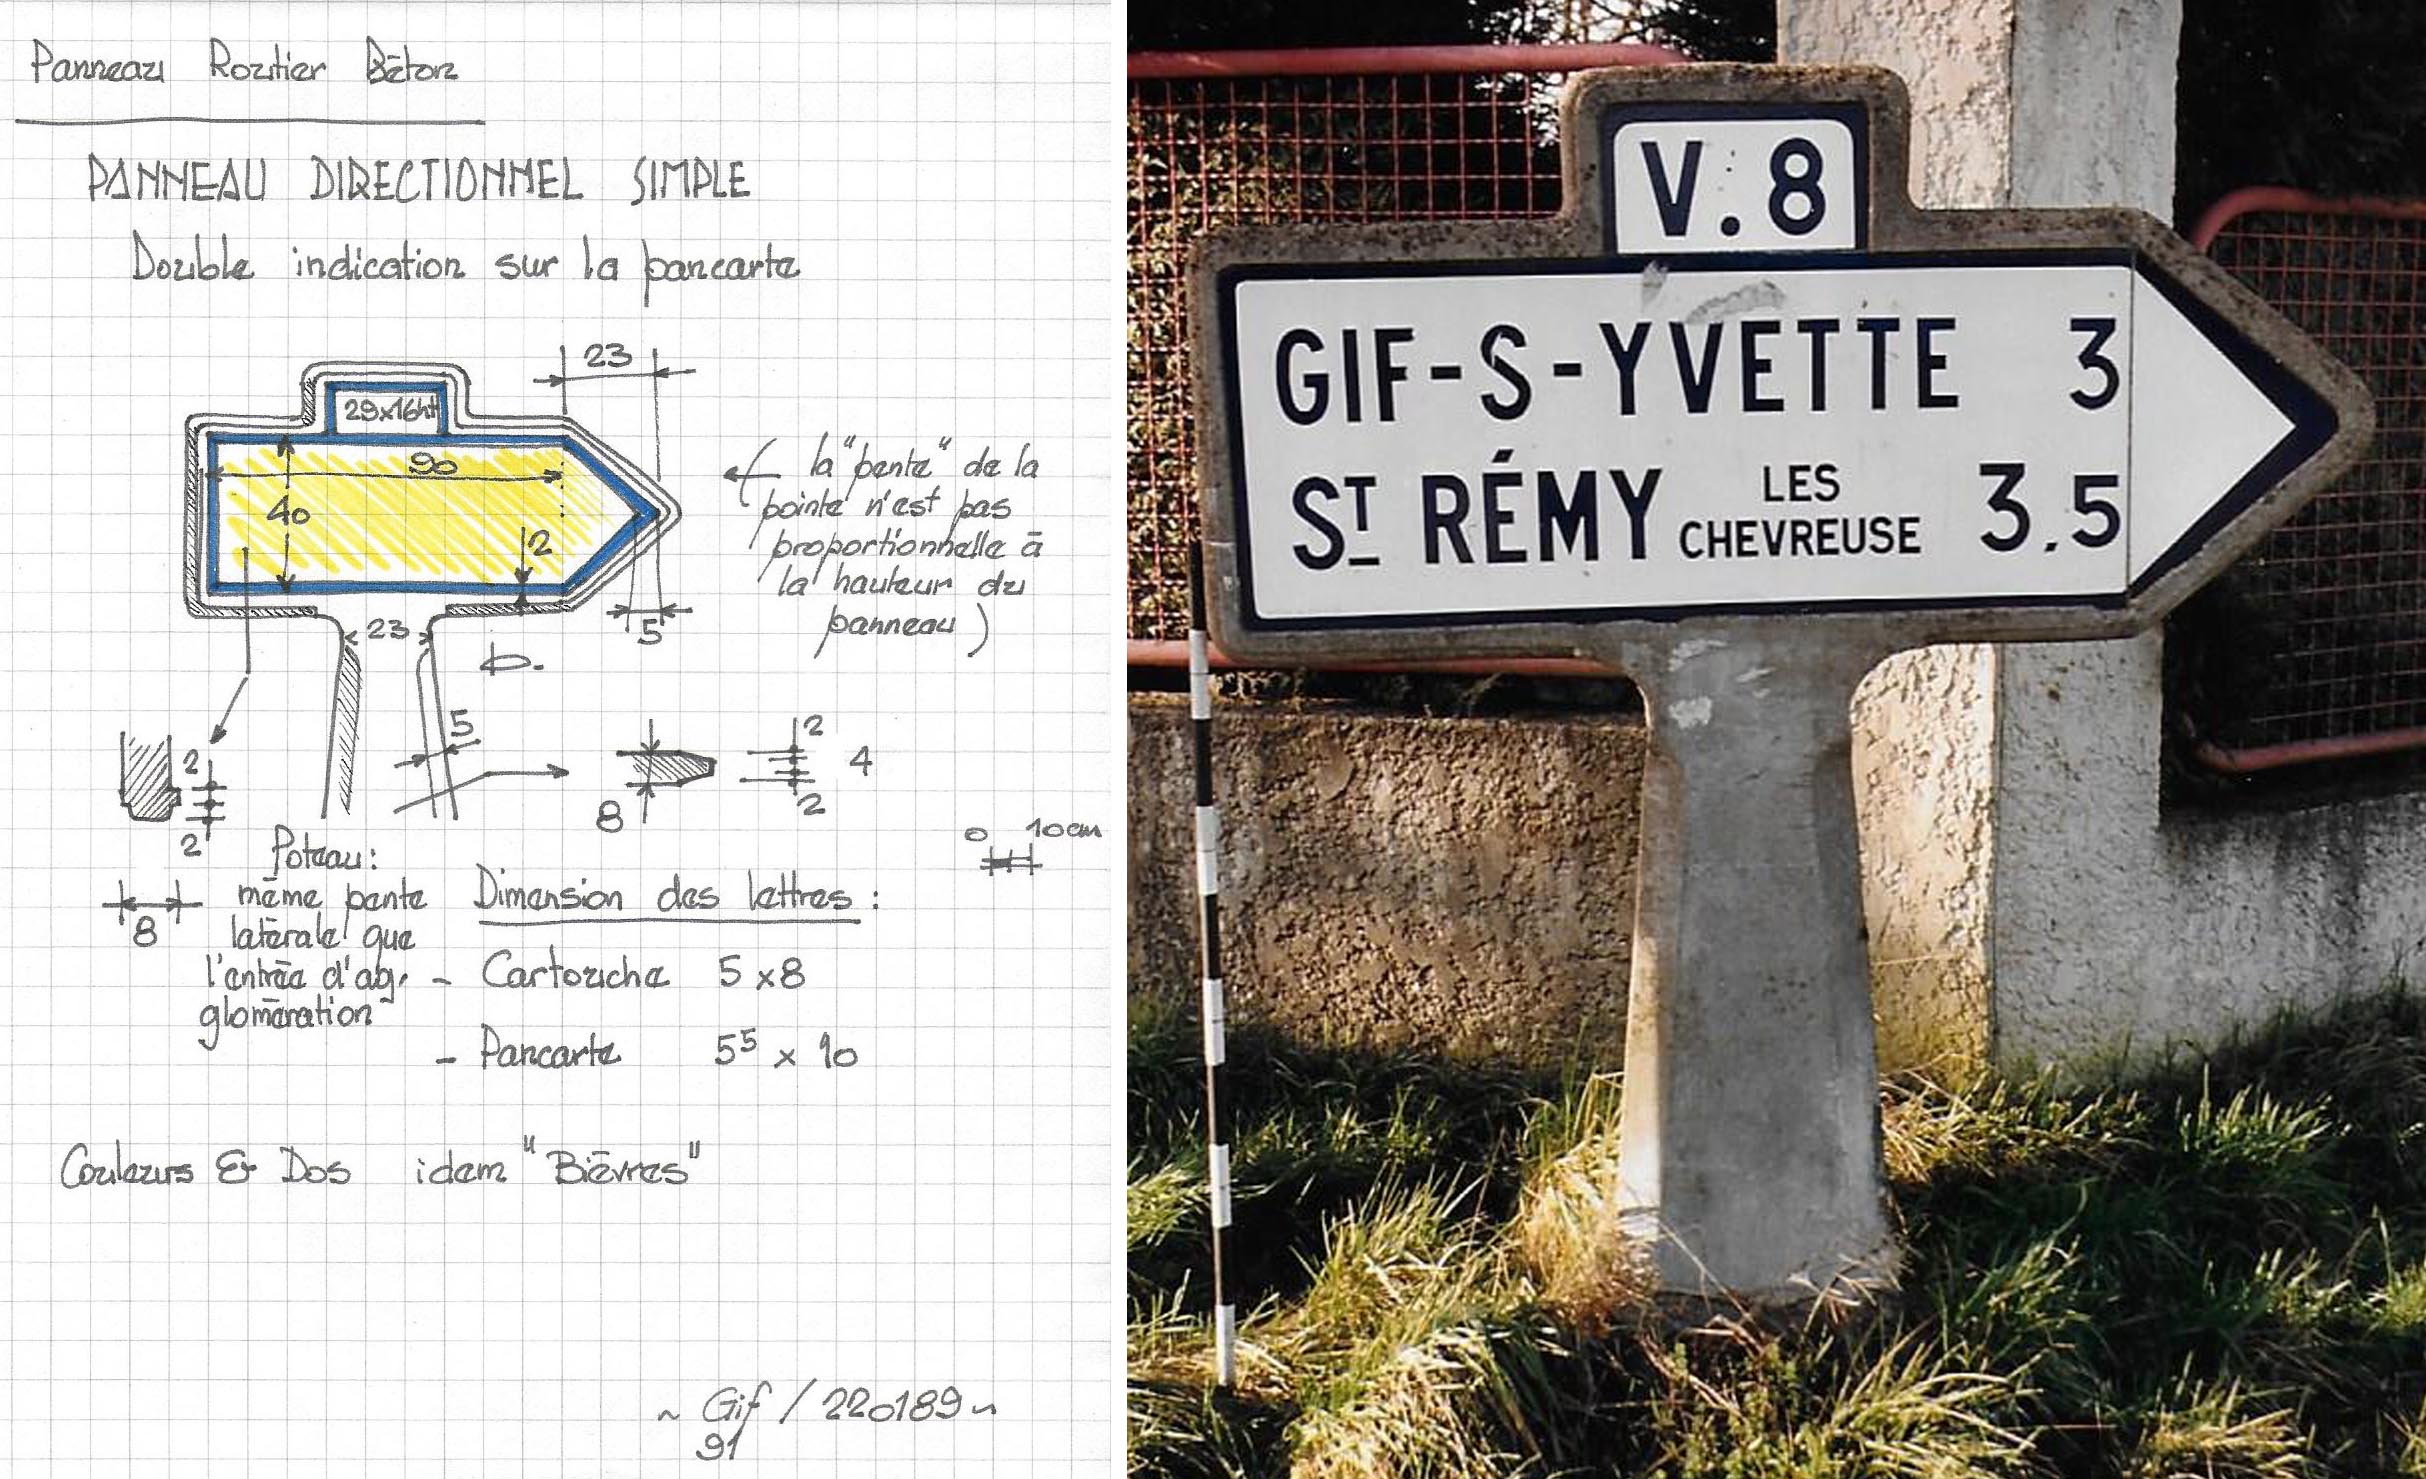 Panneau Routier Béton
PANNEAU DIRECTIONNEL SIMPLE
Double indication sur la pancarte
23
29x16ht
90
40
2
5
23
la "pente" de la
pointe n'est pas
proportionnelle à
la hauteur du
panneau )
5
2
2
8
8
2
4
2
0 10cm
Poteau :
même pente
latérale que
l'entrée d'ag-
glomération
Dimension des lettres :
- Cartouche 5 x 8
- Pancarte 5⁵ x 10
Couleurs & Dos idem "Bièvres"
~ Gif / 220189 ~
91
V.8
GIF-S-YVETTE 3
ST RÉMY LES CHEVREUSE 3,5